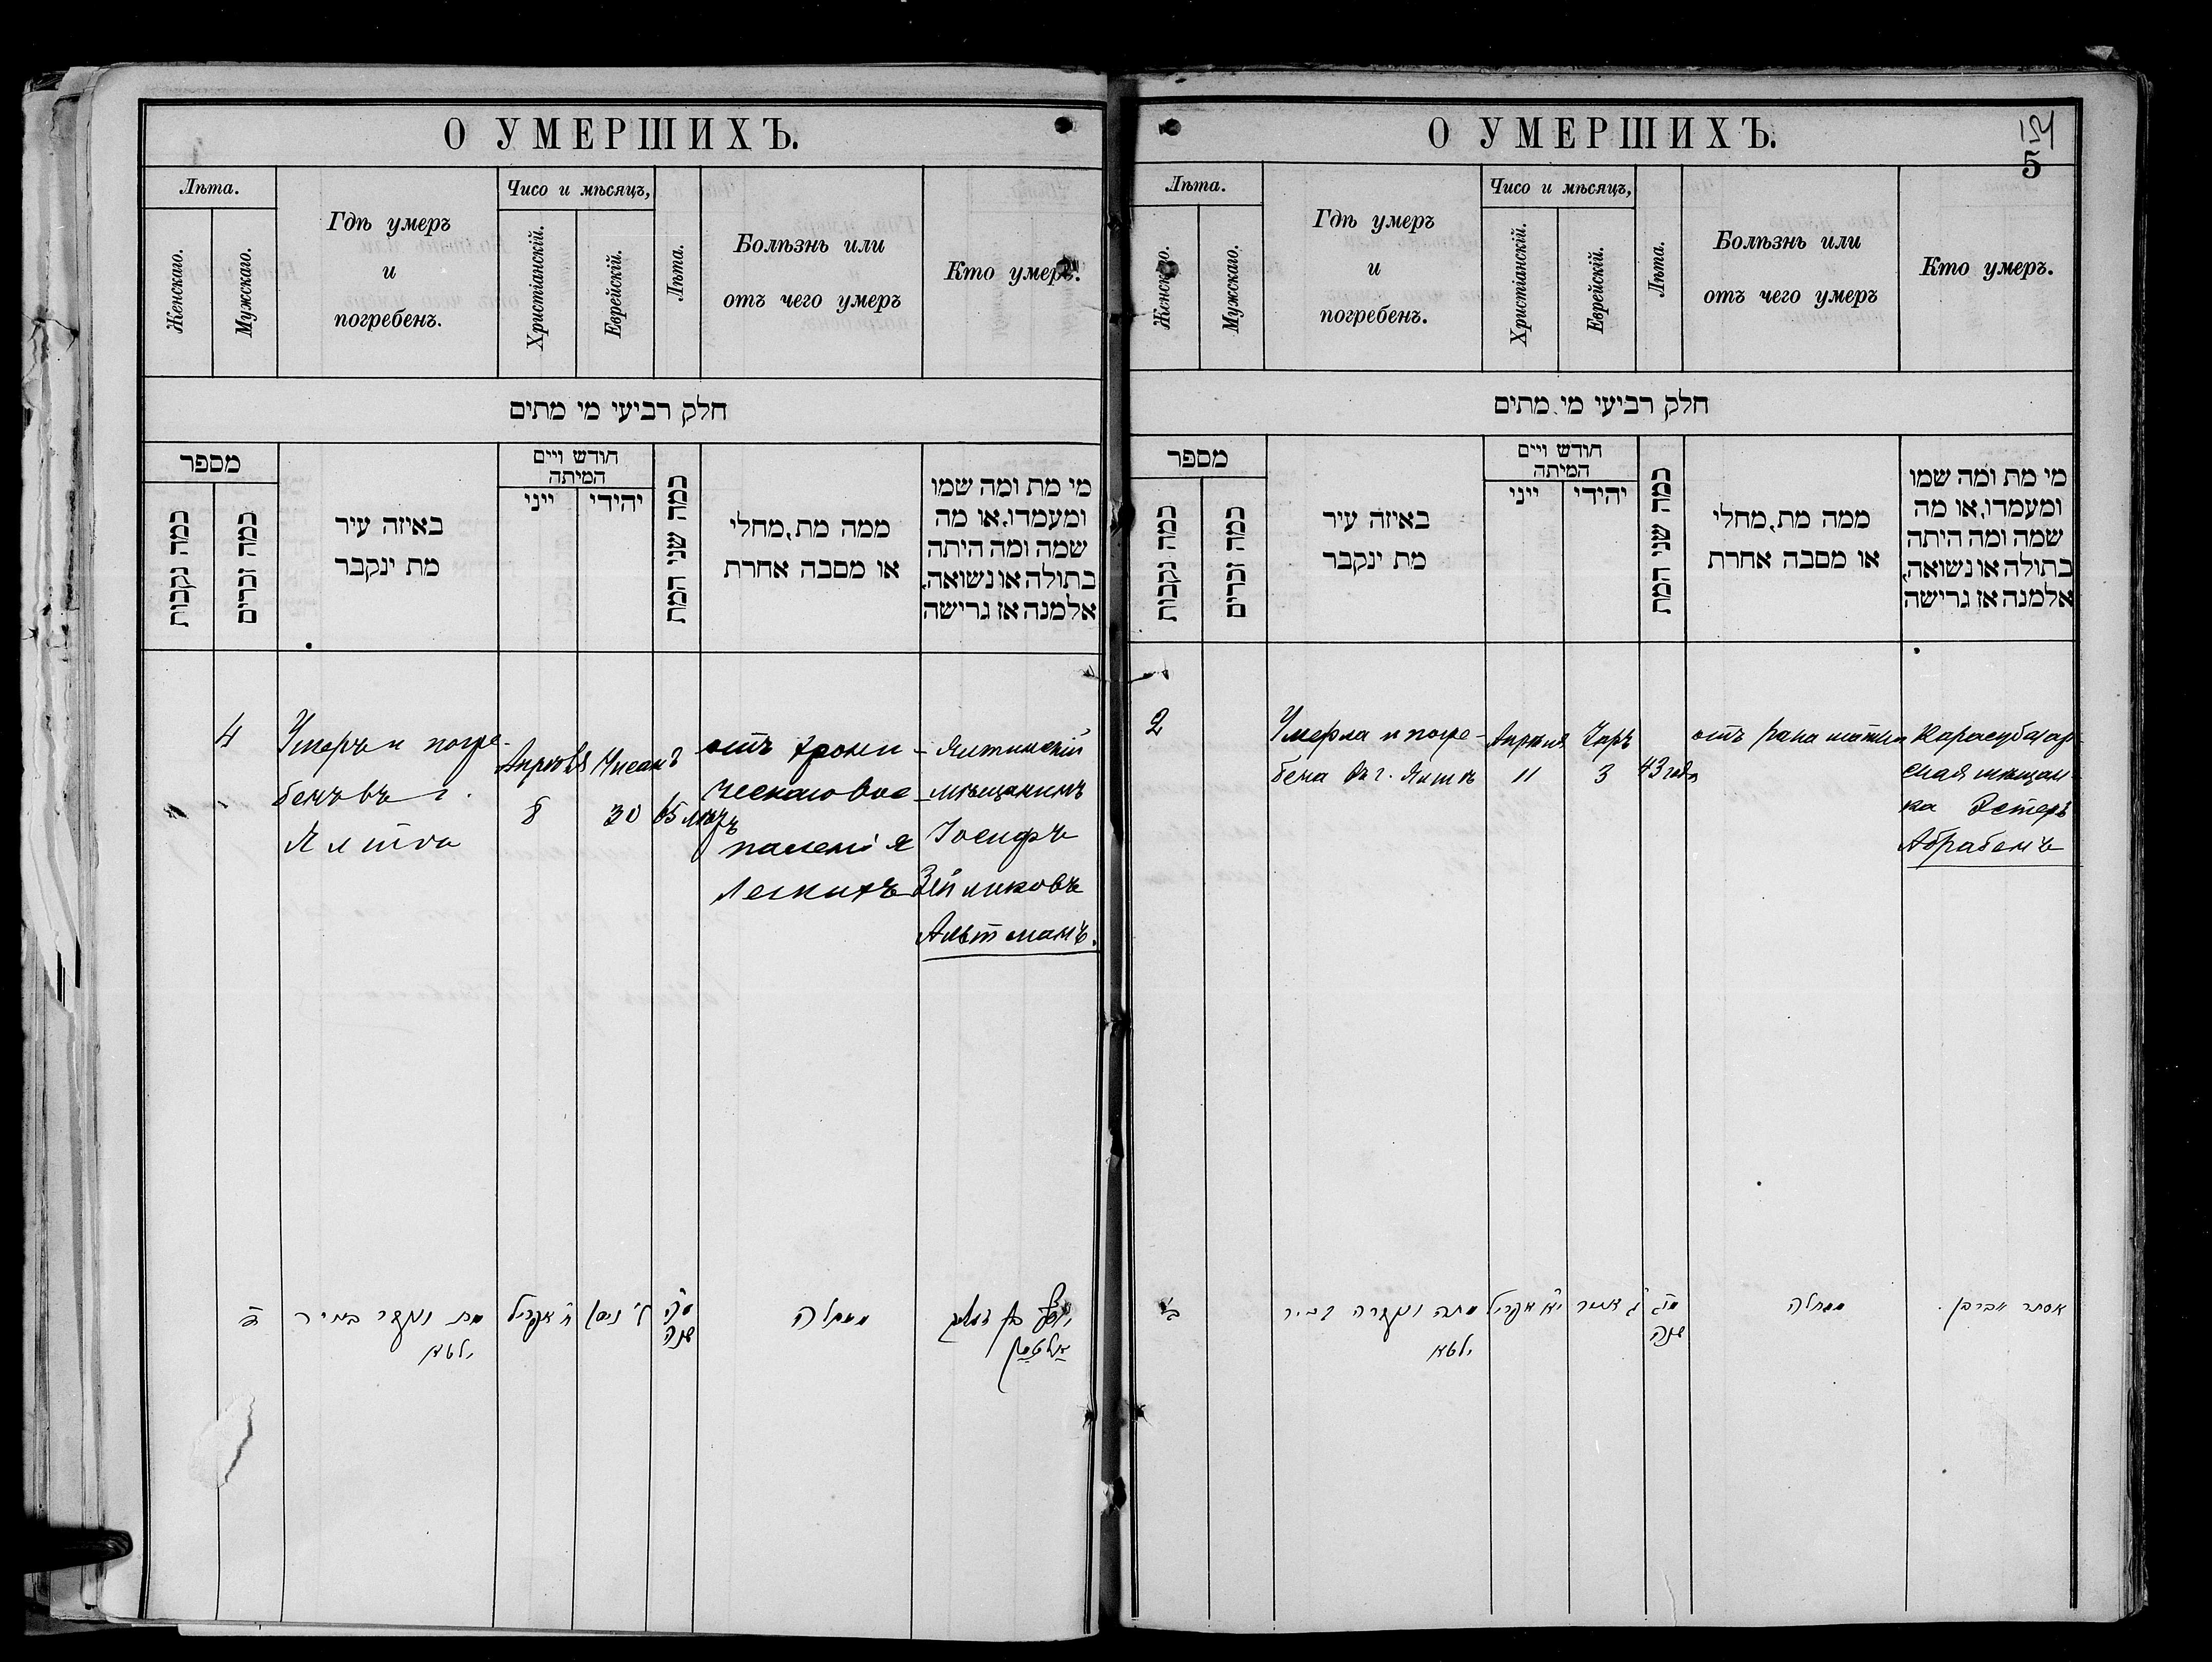 О УМЕРШИХЪ.
Лѣта.
Женскаго.
Мужскаго.
Гдѣ умеръ
и
погребенъ.
Чисо и мѣсяцъ,
Христіанскій.
Еврейскій.
Лѣта.
Болѣзнь или
отъ чего умеръ
Кто умеръ.
חלק רביעי מי מתים
מספר
כמה נקבות
כמה זכרים
באיזה עיר
מת ינקבר
חודש ויים
המיתה
ייני
יהידי
כמה שני המת
ממה מת, מחלי
או מסבה אחרת
מי מת ומה שמו
ומעמדו, או מה
שמה ומה היתה
בתולה או נשואה,
אלמנה אז גרישה
4
Умеръ и погре-
бенъ въ г.
Ялта
Апрѣля
8
Нисанъ
30
65 лѣтъ
отъ хрони-
ческаго вос-
паленія
легкихъ
Ялтинскій
мѣщанинъ
Іосифъ
Зейликовъ
Альтманъ.
ד
מת ונקבר בעיר
ילטא
ח אפריל
ל' ניסן
ס״ה
שנה
ממחלה
יוסף בן זעליק
אלטמן
О УМЕРШИХЪ.
5
Лѣта.
Женскаго.
Мужскаго.
Гдѣ умеръ
и
погребенъ.
Чисо и мѣсяцъ,
Христіанскій.
Еврейскій.
Лѣта.
Болѣзнь или
отъ чего умеръ
Кто умеръ.
חלק רביעי מי מתים
מספר
כמה נקבות
כמה זכרים
באיזה עיר
מת ינקבר
חודש ויים
המיתה
ייני
יהידי
כמה שני המת
ממה מת, מחלי
או מסבה אחרת
מי מת ומה שמו
ומעמדו, או מה
שמה ומה היתה
בתולה או נשואה,
אלמנה אז גרישה
2
Умерла и погре-
бена въ г. Ялтѣ
Апрѣля
11
Іяръ
3
43 года
отъ рака матки
Карасубазар-
ская мѣщан-
ка Эстеръ
Абрабенъ
ב'
מתה ונקברה בעיר
ילטא
י״א אפריל
ג' אייר
מ״ג
שנה
ממחלה
אסתר אברבן.